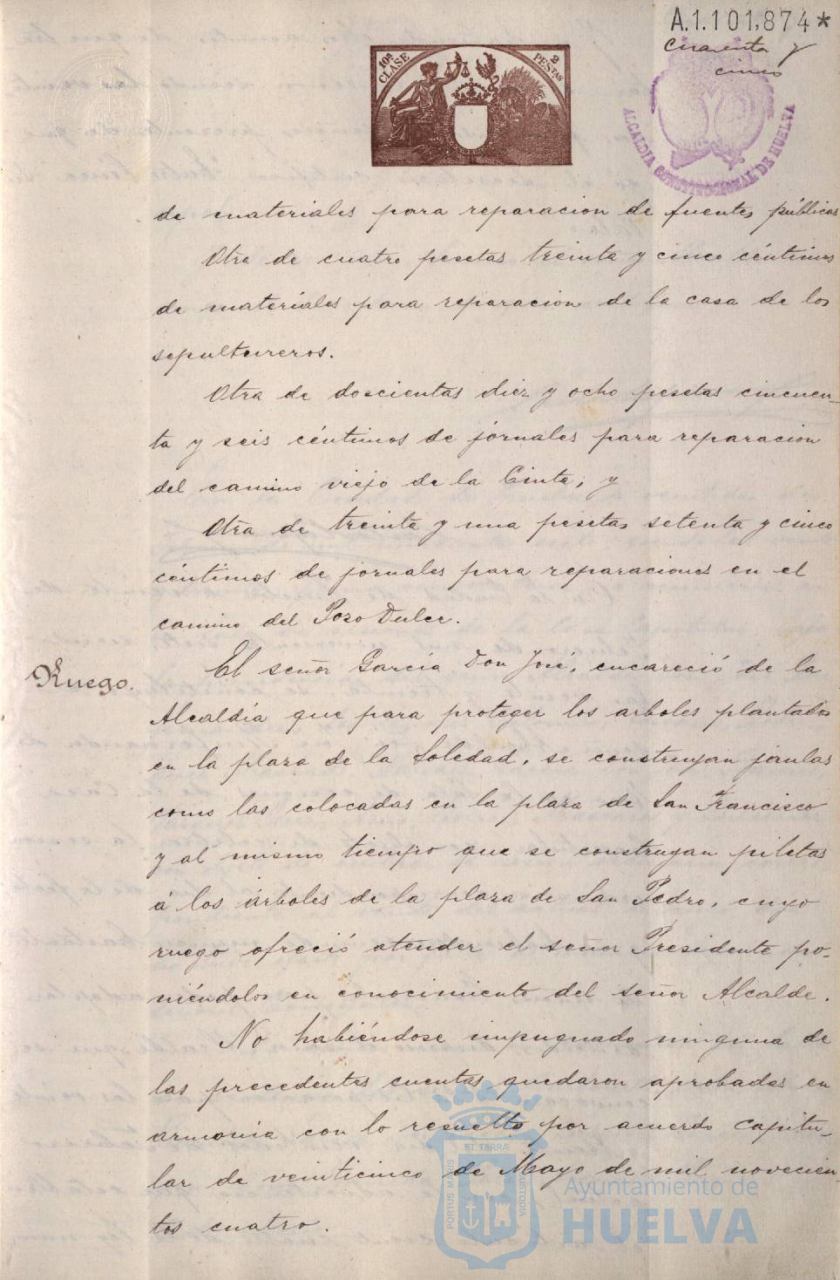 A.1.101,874*
cuarenta y
cinco
10ª CLASE
2 PESETAS
ALCALDIA CONSTITUCIONAL DE HUELVA
de materiales para reparacion de fuentes públicas
Otra de cuatro pesetas treinta y cinco céntimos
de materiales para reparacion de la casa de los
sepultureros.
Otra de doscientas diez y ocho pesetas cincuen-
ta y seis céntimos de jornales para reparacion
del camino viejo de la Cinta; y
Otra de treinta y una pesetas setenta y cinco
céntimos de jornales para reparaciones en el
camino del Pozo Dulce.
Ruego.
El señor García Don José, encareció de la
Alcaldía que para proteger los arboles plantados
en la plaza de la Soledad, se construyan jaulas
como las colocadas en la plaza de San Francisco
y al mismo tiempo que se construyan piletas
á los árboles de la plaza de San Pedro, cuyo
ruego ofreció atender el señor Presidente po-
niéndolos en conocimiento del señor Alcalde.
No habiéndose impugnado ninguna de
las precedentes cuentas quedaron aprobadas en
armonia con lo resuelto por acuerdo capitu-
lar de veinticinco de Mayo de mil novecien-
tos cuatro.
ET TERRÆ
PORTUS MARIS
CUSTODIA
Ayuntamiento de
HUELVA